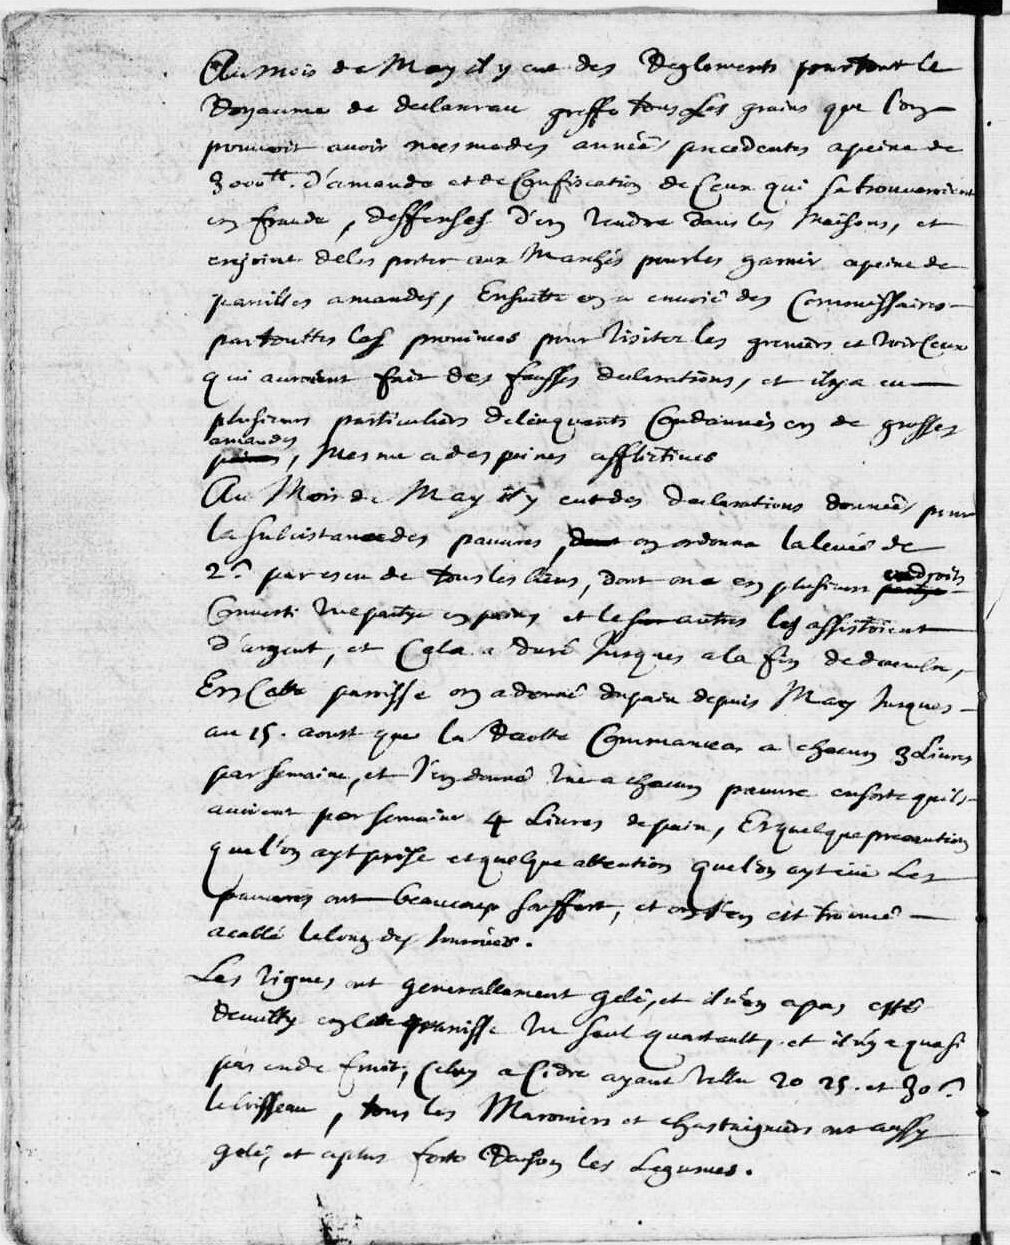 Au mois de May il y eut des Reglements pour tout le
Royaume de declarer au greffe tous les grains que l'on
pouvoit avoir mesme des années precedentes a peine de
3000tt. d'amande et de Confiscation de Ceux qui se trouveroient
en fraude, deffenses d'en vendre dans les Maisons, et
enjoint de les porter aux Marchés pour les garnir a peine de
pareilles amandes, Ensuitte on a envoié des Commissaires
par touttes les provinces pour visiter les greniers et voir Ceux
qui auroient fait des fausses declarations, et il y a eu
plusieurs particuliers delinquants Condamnés en de grosses
amandes
peines, Mesme a des peines afflictives
Au Mois de May il y eut des declarations données pour
la subcistance des pauvres, dont on ordonna la levée de
2s par escu de tous les biens, dont on a en plusieurs endroits
Converti une partye en pain et les autres les assistoient
d'argent, et Cela a duré Jusques a la fin de decembre,
En Cette parroisse on a donné du pain depuis May Jusques
au 15. aoust que la Recolte Commancea a chacun 3 Livres
par semaine, et J'en donné une a chacun pauvre en sorte qu'ils
avoient par semaine 4 Livres de pain, Et quelque precaution
que l'on ayt prise et quelque attention que l'on ayt eüe Les
pauvres ont beaucoup souffert, et on s'en est trouvé
acablé le long des Journées.
Les vignes ont generallement gelé, et il n'en a pas esté
Cueilly en Cette parroisse un seul quartault, et il n'y a quasi
pas eu de fruit, Celuy a Cidre ayant vallu 20 25. et 30s
le boisseau, tous les Maroniers et chastaigniers ont aussy
gelé, et a plus forte Raison les Legumes.